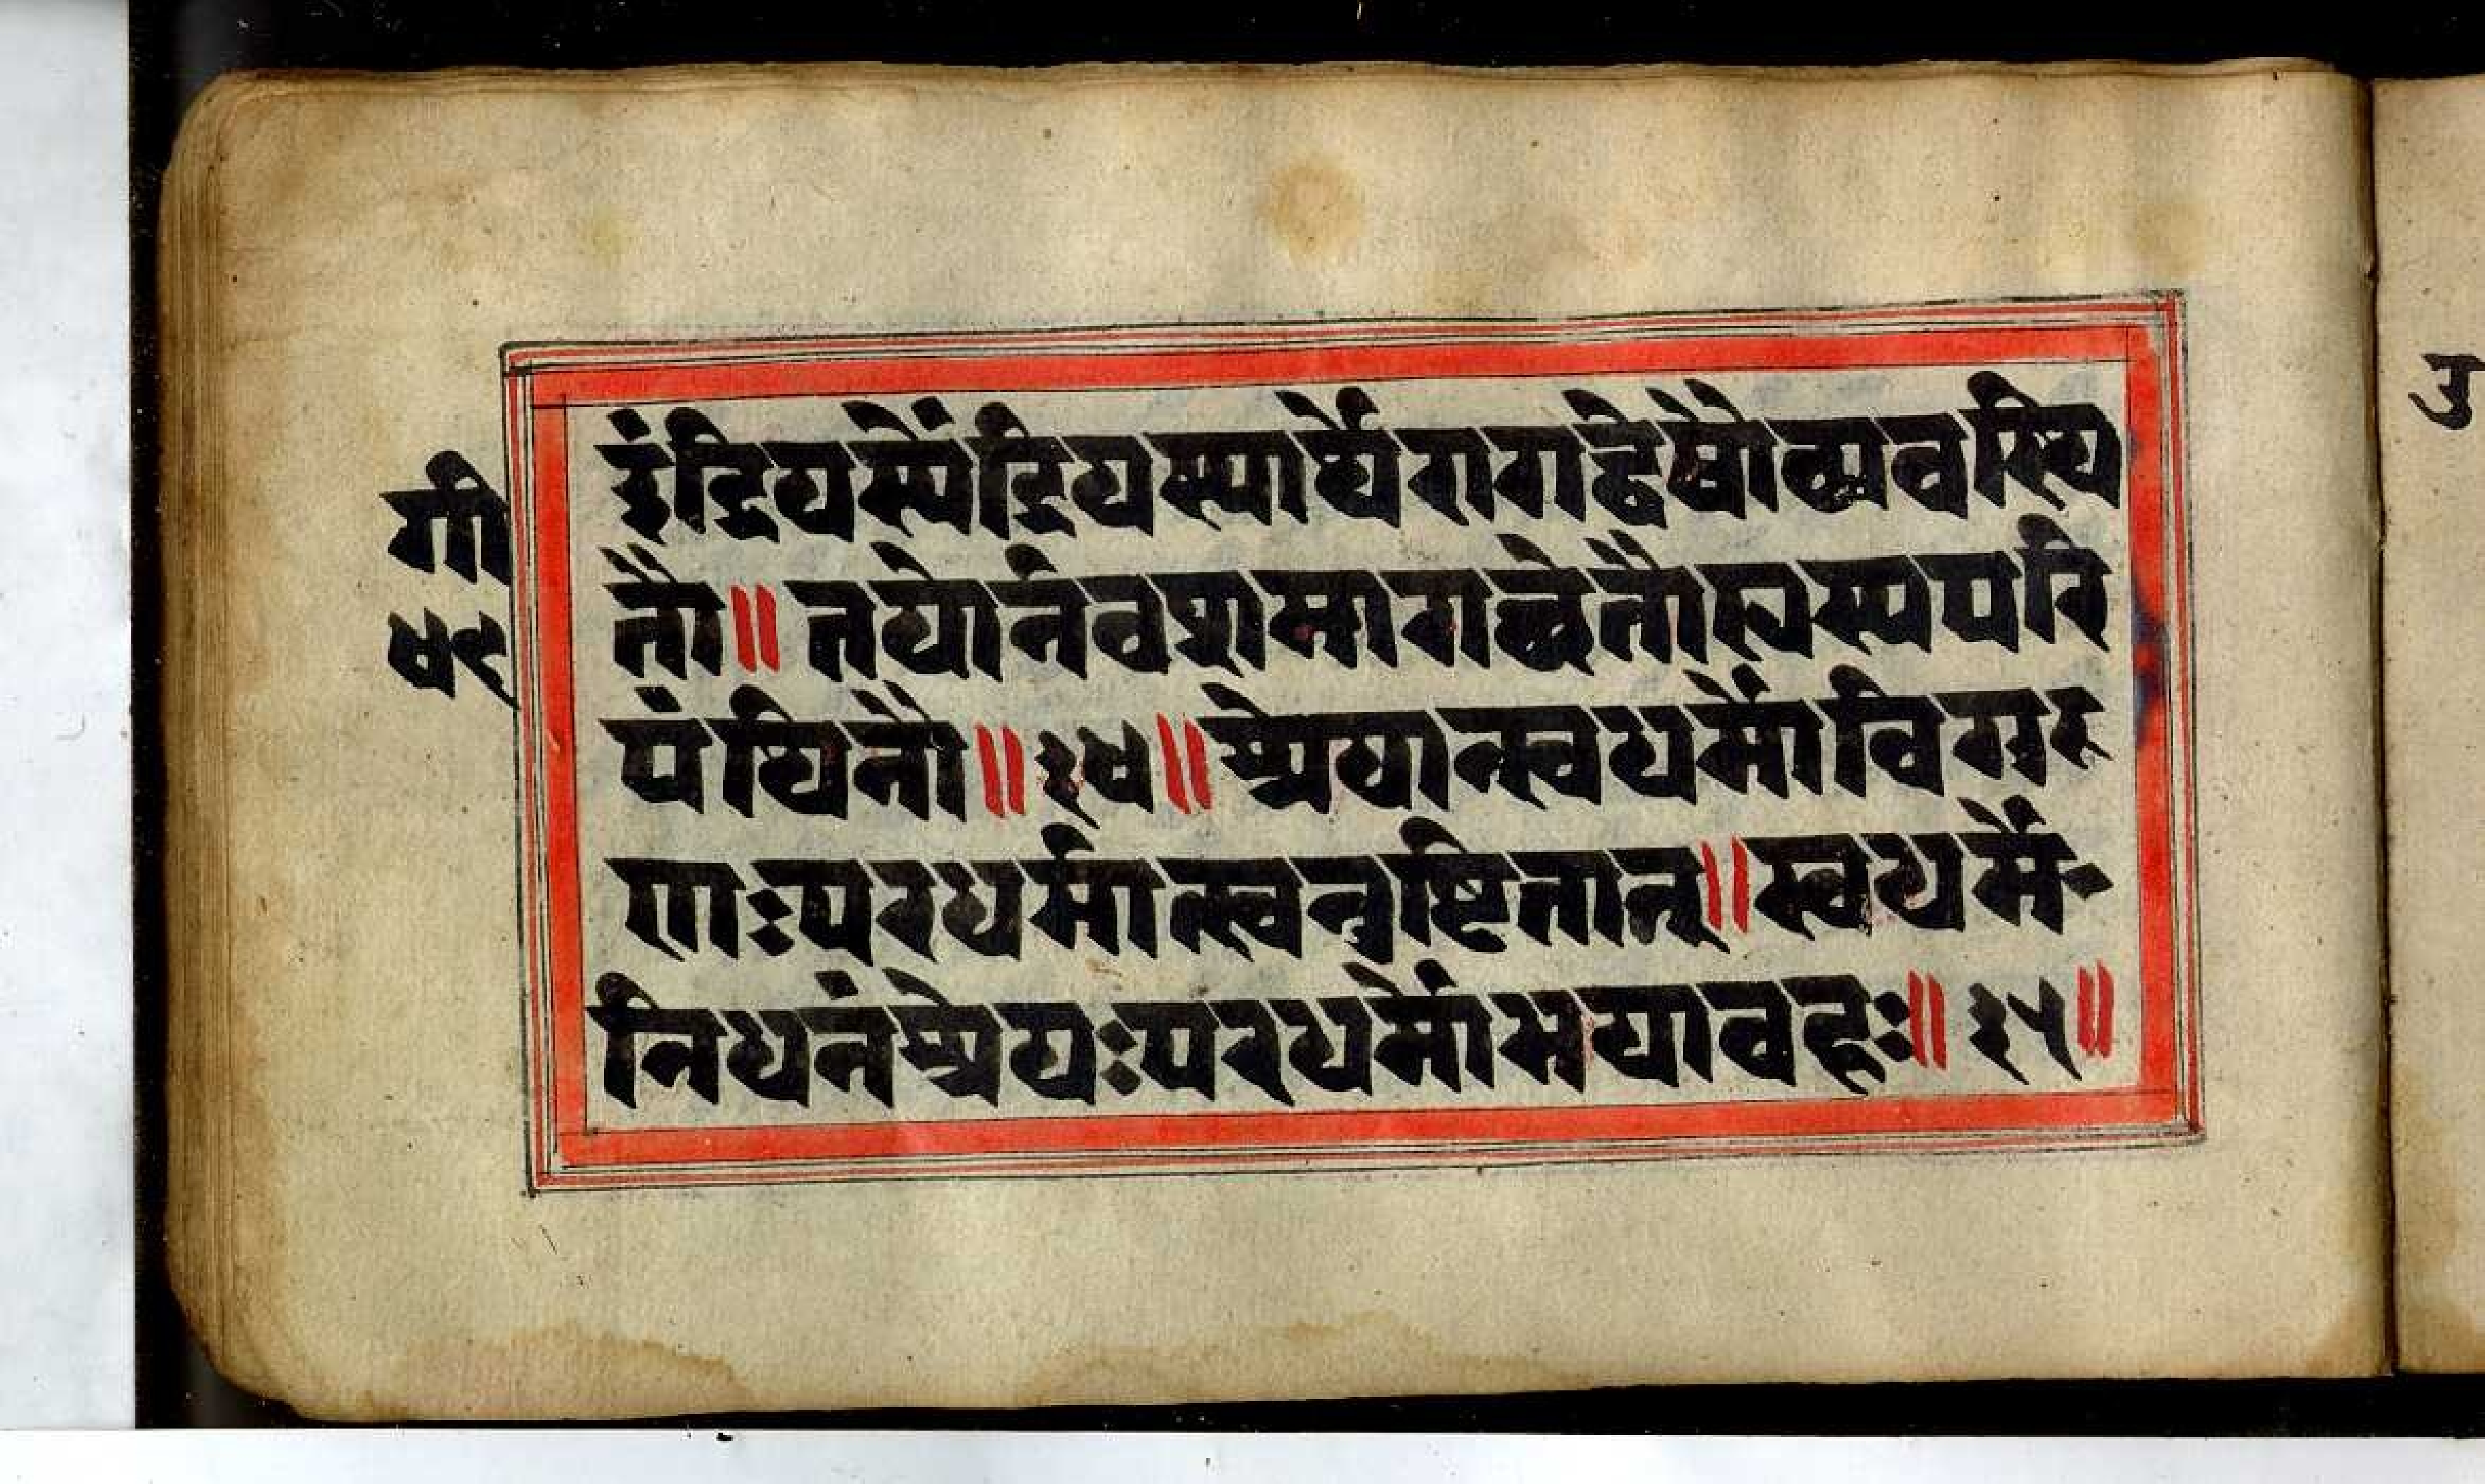 गी
४९
इंद्रियस्येंद्रियस्यार्थेरागद्वेषौव्यवस्थि
तौ॥तयोर्नवशमागच्छेत्तौह्यस्यपरि
पंथिनौ॥३४॥श्रेयान्स्वधर्मोविगुण
णाःपरधर्मात्स्वनुष्टितात्॥स्वधर्मे-
निधनंश्रेयःपरधर्मोभयावहः॥३५॥
उ